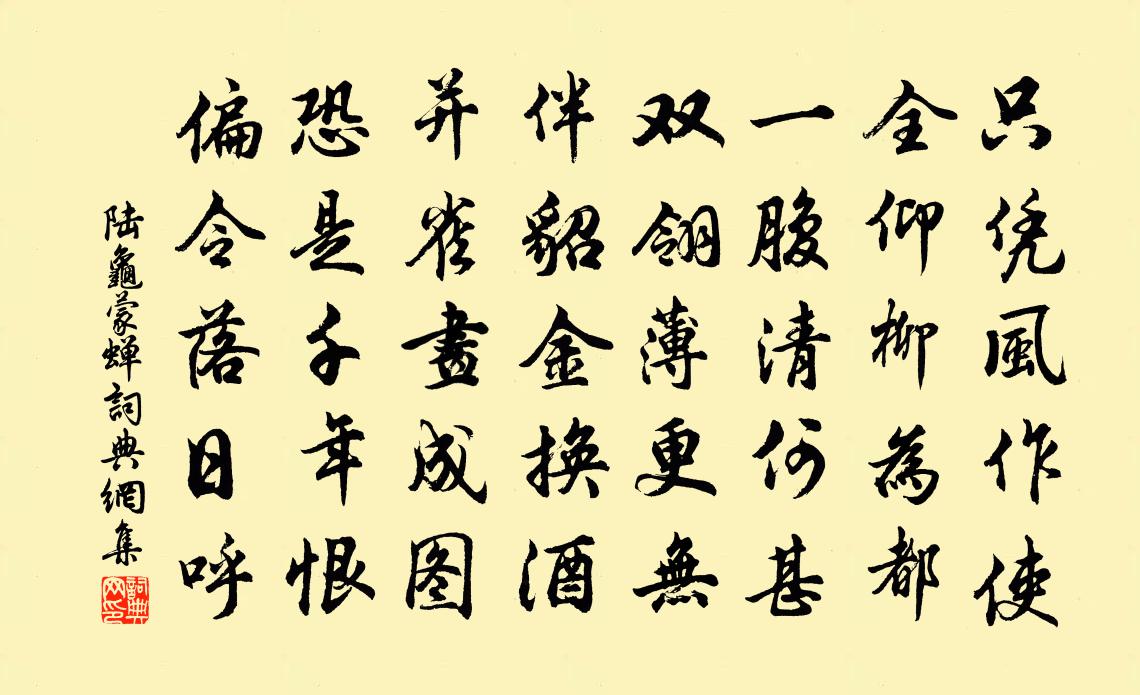 只凭風作使
全仰柳為都
一腹清何甚
双翎薄更無
伴貂金換酒
并雀畫成图
恐是千年恨
偏令落日呼
陆龜蒙蝉詞典網集
詞典网印